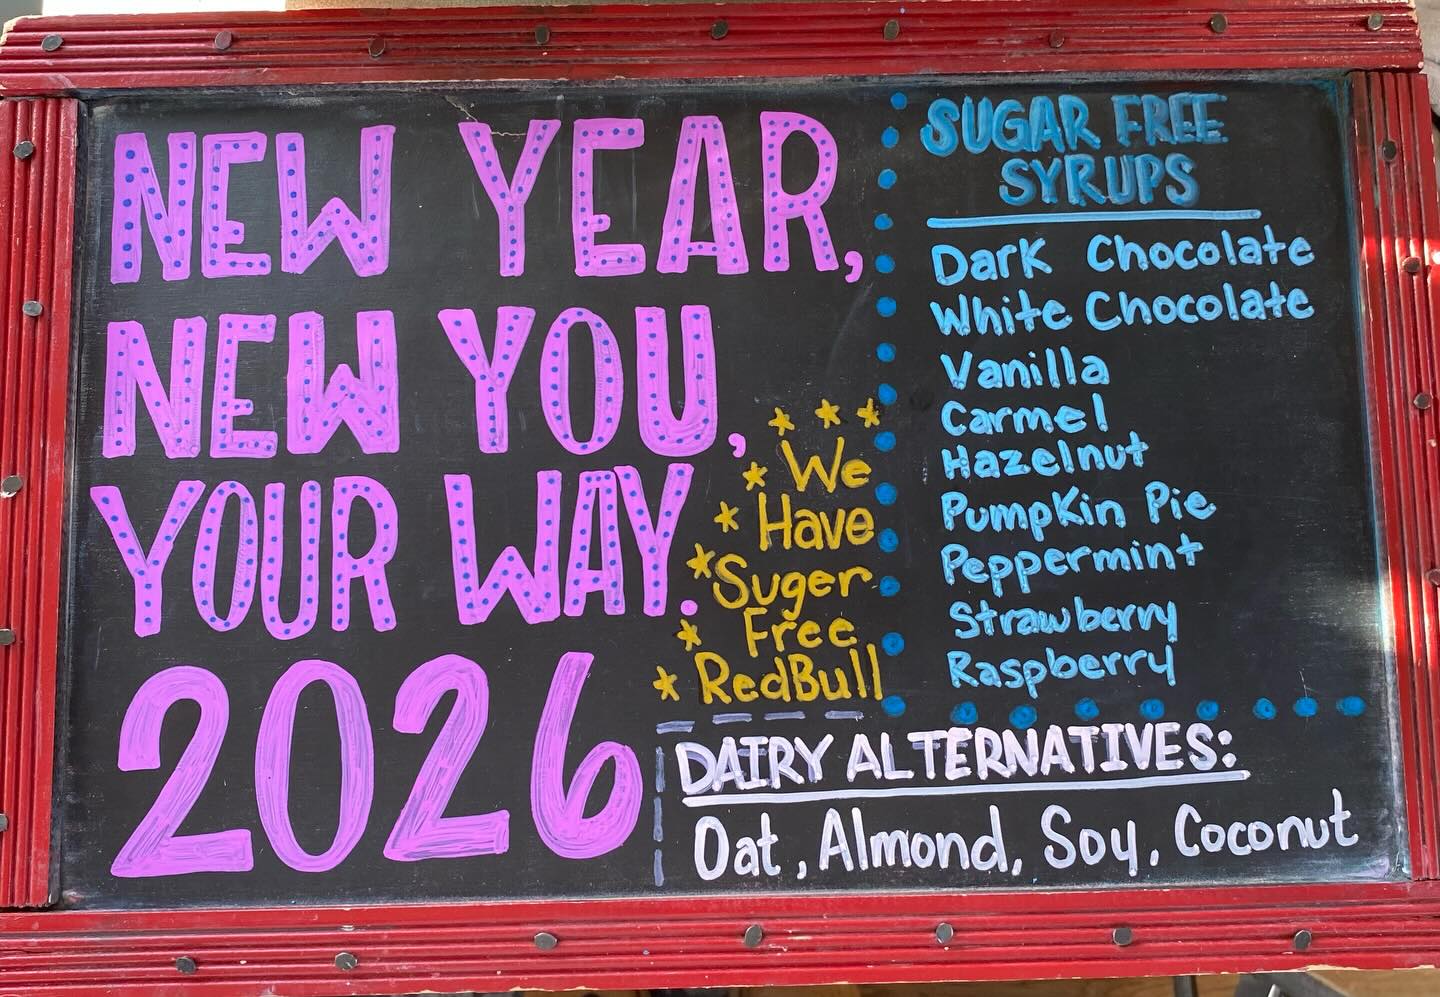 NEW YEAR,
NEW YOU,
YOUR WAY.
2026
We
Have
Suger
Free
RedBull
SUGAR FREE
SYRUPS
Dark Chocolate
White Chocolate
Vanilla
Carmel
Hazelnut
Pumpkin Pie
Peppermint
Strawberry
Raspberry
DAIRY ALTERNATIVES:
Oat, Almond, Soy, Coconut